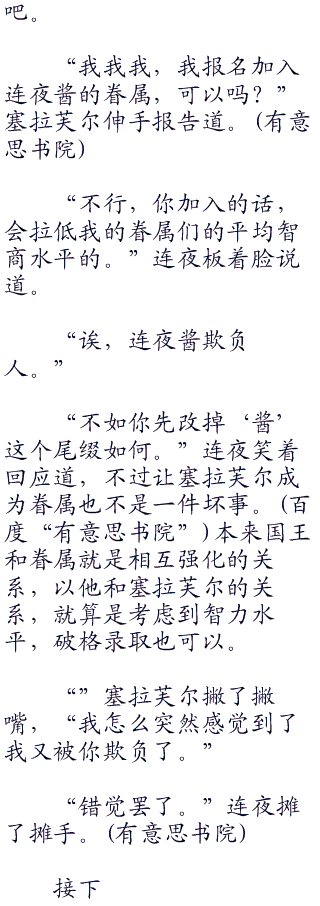 吧。
“我我我，我报名加入
连夜酱的眷属，可以吗？”
塞拉芙尔伸手报告道。(有意
思书院)
“不行，你加入的话，
会拉低我的眷属们的平均智
商水平的。”连夜板着脸说
道。
“诶，连夜酱欺负
人。”
“不如你先改掉‘酱’
这个尾缀如何。”连夜笑着
回应道，不过让塞拉芙尔成
为眷属也不是一件坏事。(百
度“有意思书院”)本来国王
和眷属就是相互强化的关
系，以他和塞拉芙尔的关
系，就算是考虑到智力水
平，破格录取也可以。
“”塞拉芙尔撇了撇
嘴，“我怎么突然感觉到了
我又被你欺负了。”
“错觉罢了。”连夜摊
了摊手。(有意思书院)
接下